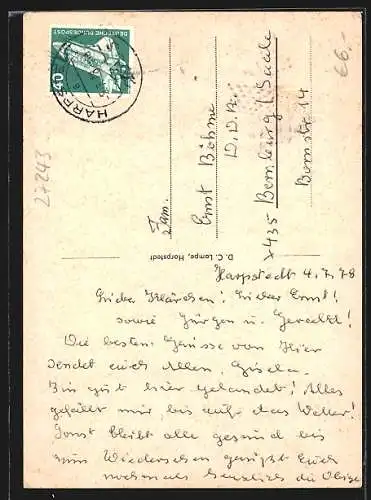 27243
66.-
DEUTSCHE BUNDESPOST
40
HARPSTEDT
Fam.
Ernst Böhme
D.D.R.
x435 Bernburg/Saale
Bornstr. 14
D. C. Lampe, Harpstedt
Harpstedt 4.7.78
Liebe Klärchen! Lieber Ernst!
sowie Jürgen u.
Die besten Grüsse von Hier
sendet euch Allen, Gisela.
Bin gut hier gelandet! Alles
gefällt mir, bis auf das Wetter!
Sonst bleibt alle gesund bis
zum Wiedersehen grüßt Euch
nochmals herzlichst die Obige